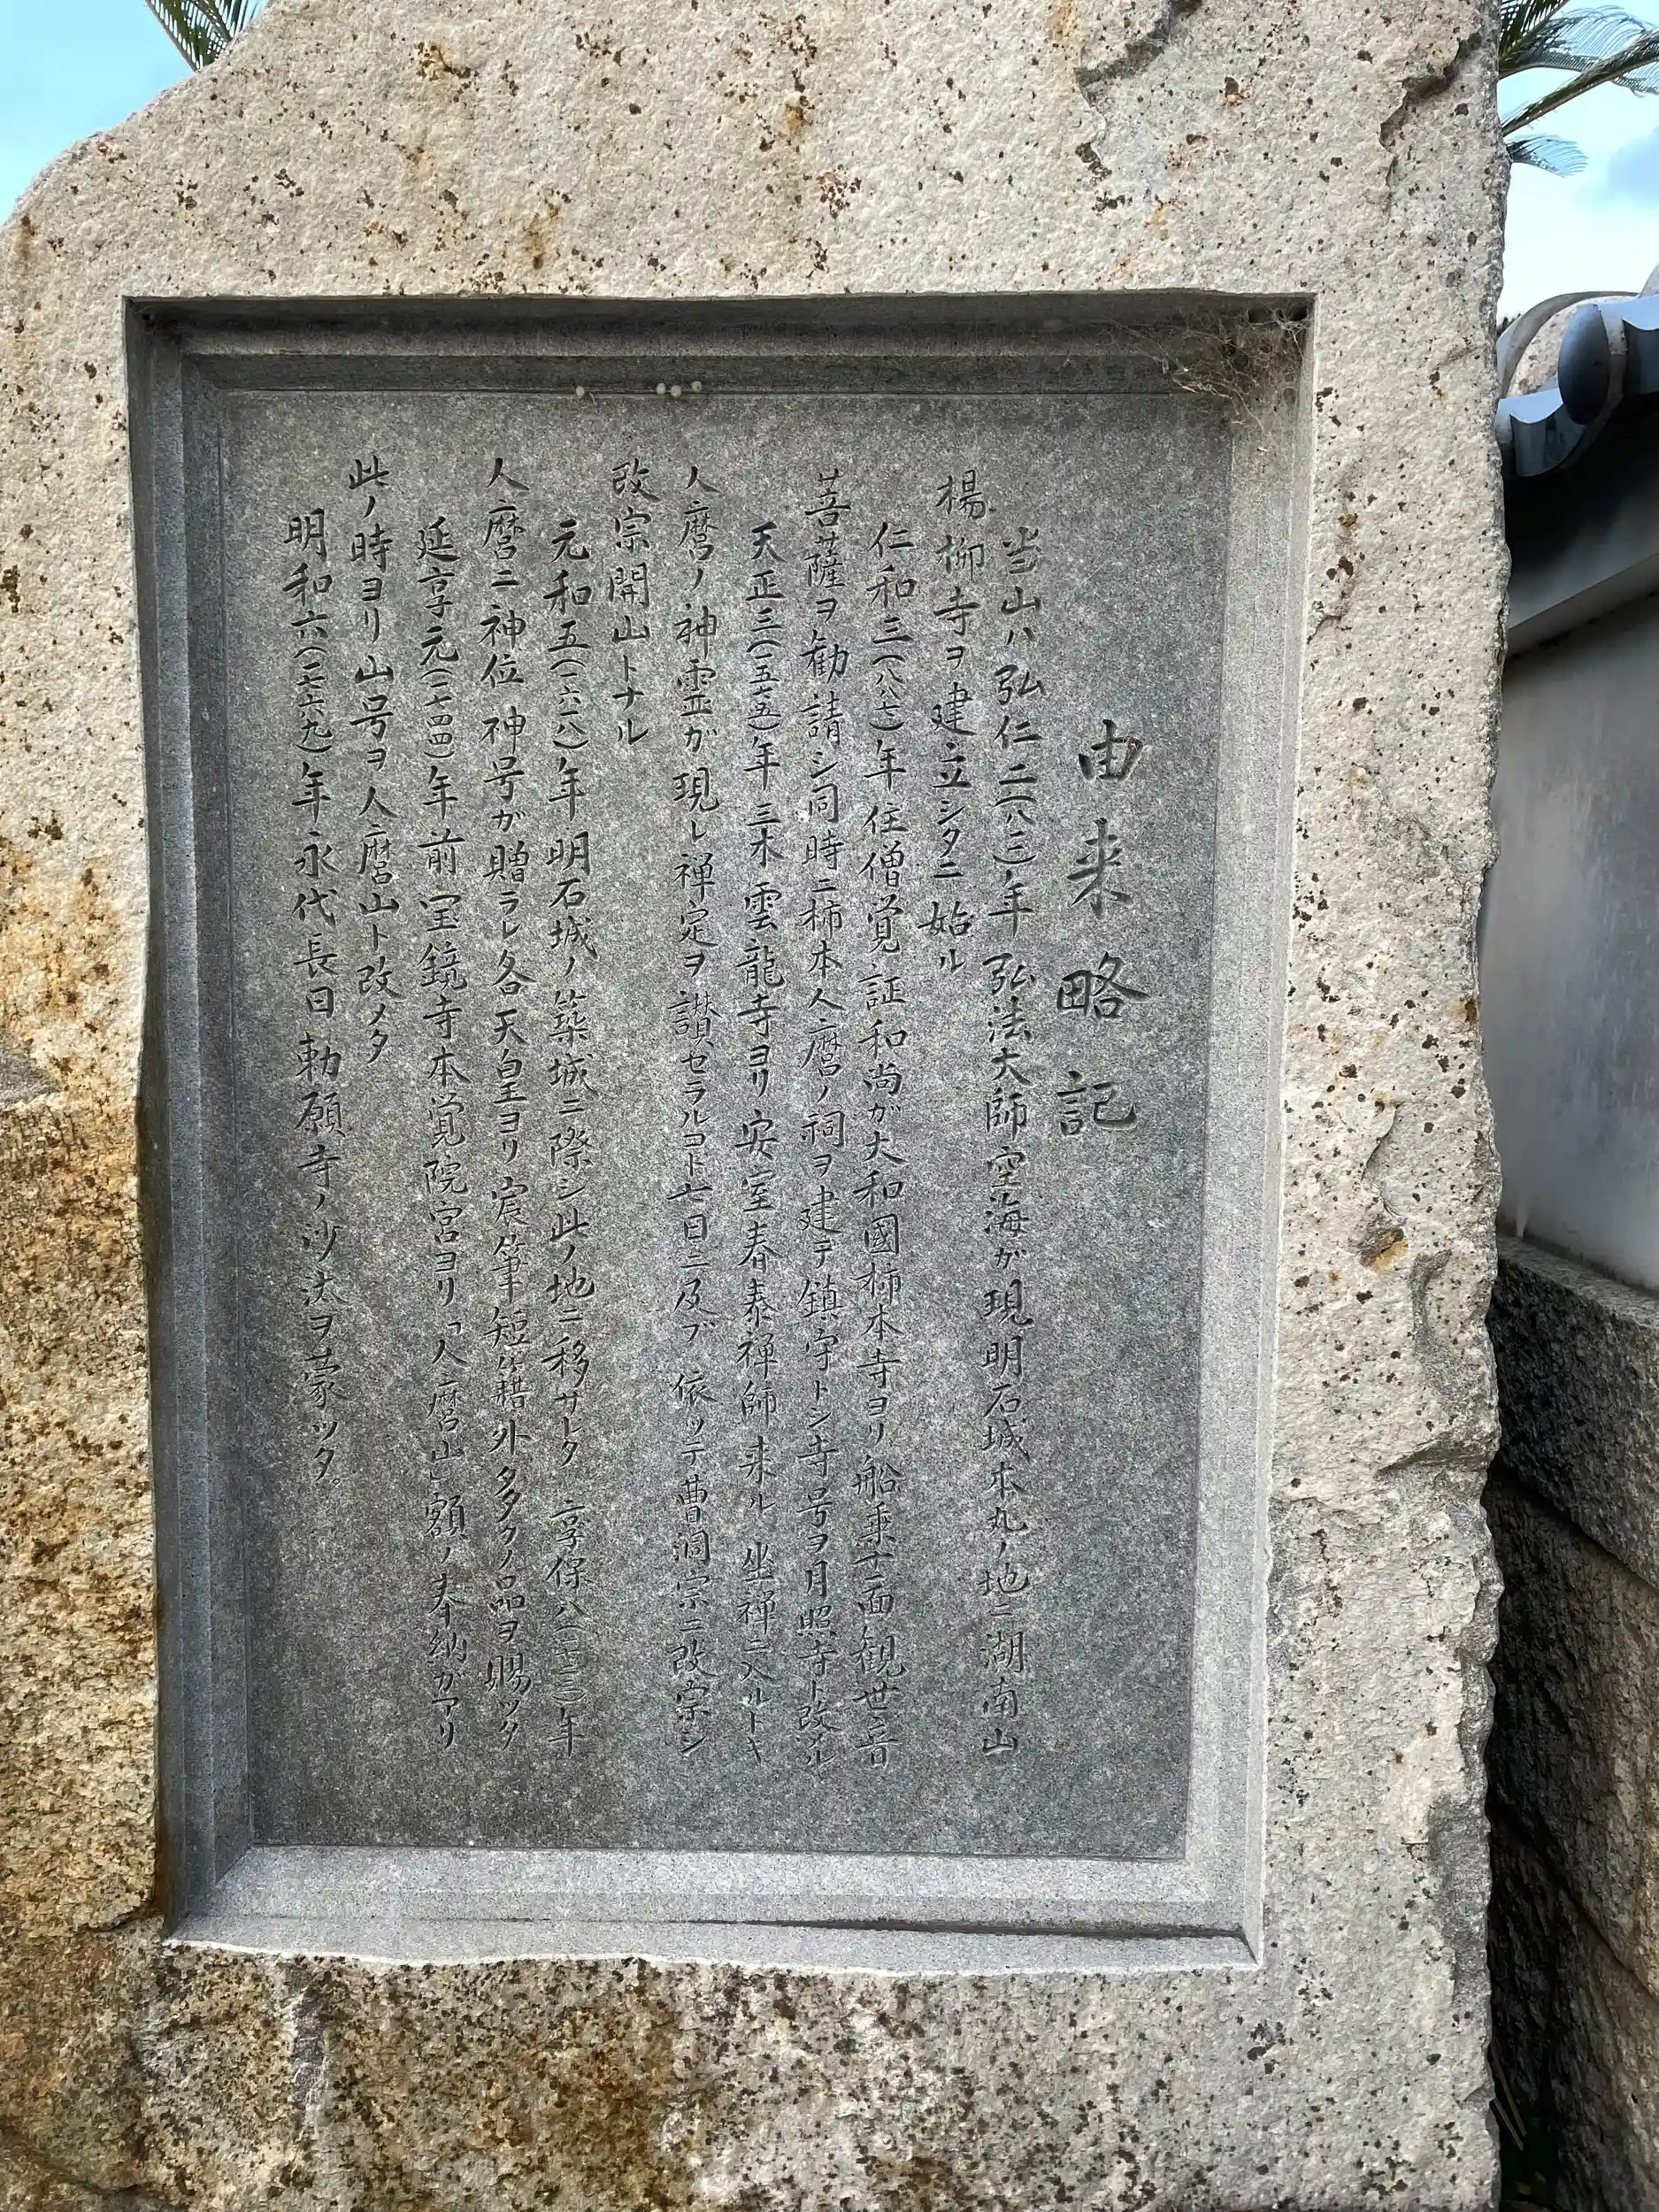 由来略記
当山ハ弘仁二(八一一)年弘法大師空海ガ現明石城本丸ノ地ニ湖南山
楊柳寺ヲ建立シタニ始ル
仁和三(八八七)年住僧覚証和尚ガ大和國柿本寺ヨリ船乗十一面観世音
菩薩ヲ勧請シ同時ニ柿本人麿ノ祠ヲ建テ鎮守トシ寺号ヲ月照寺ト改ル
天正三(一五七五)年三木雲龍寺ヨリ安室春泰禅師来ル坐禅ニ入ルトキ
人麿ノ神霊ガ現レ禅定ヲ讃セラルヽコト七日ニ及ブ依ッテ曹洞宗ニ改宗シ
改宗開山トナル
元和五(一六一八)年明石城ノ築城ニ際シ此ノ地ニ移サレタ享保八(一七二三)年
人麿ニ神位神号ガ贈ラレ各天皇ヨリ宸筆短籍外多クノ品ヲ賜ッタ
延享元(一七四四)年前宝鏡寺本覚院宮ヨリ「人麿山」額ノ奉納ガアリ
此ノ時ヨリ山号ヲ人麿山ト改メタ
明和六(一七六九)年永代長日勅願寺ノ沙汰ヲ蒙ッタ。